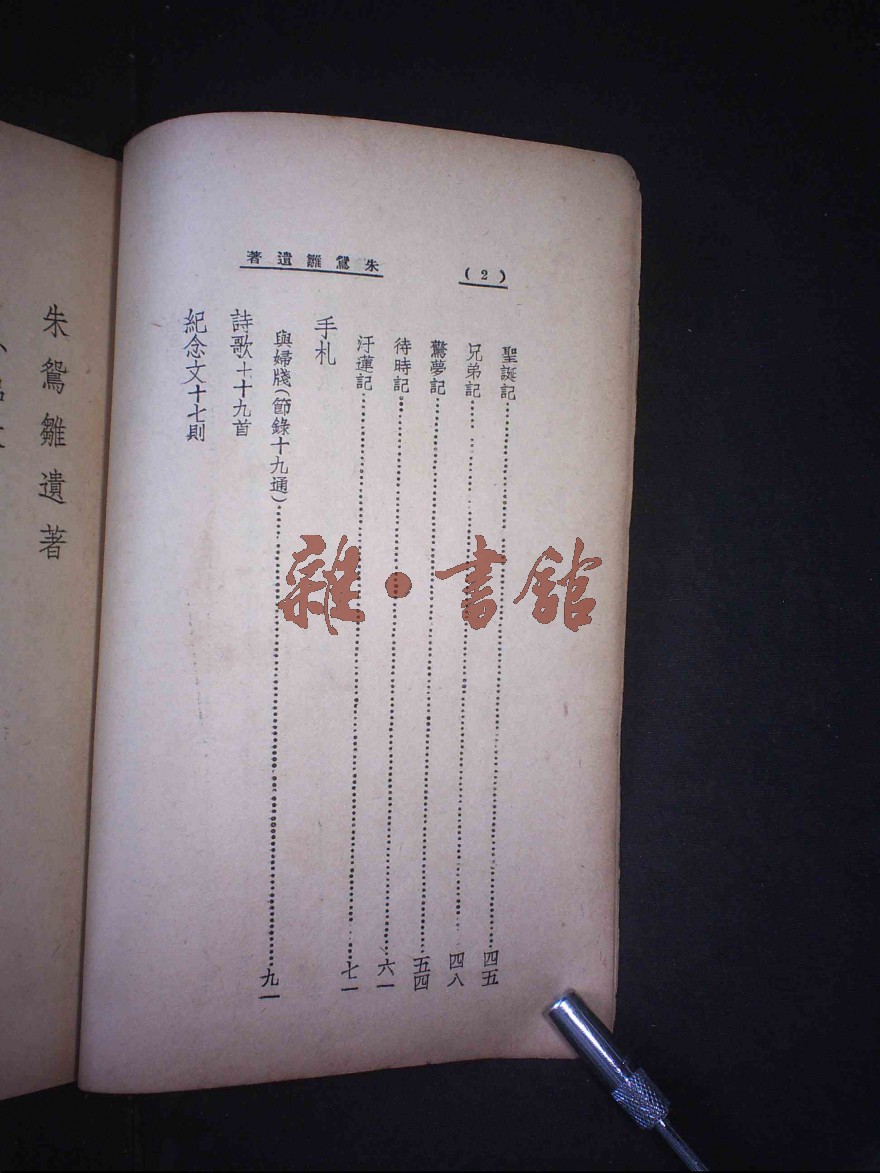 (2)
朱鴛雛遺著
聖誕記……四五
兄弟記……四八
驚夢記……五四
待時記……六一
汙蓮記……七一
手札
與婦牋(節錄十九通)……九一
詩歌十十九首
紀念文十七則
朱鴛雛遺著
雜·書館